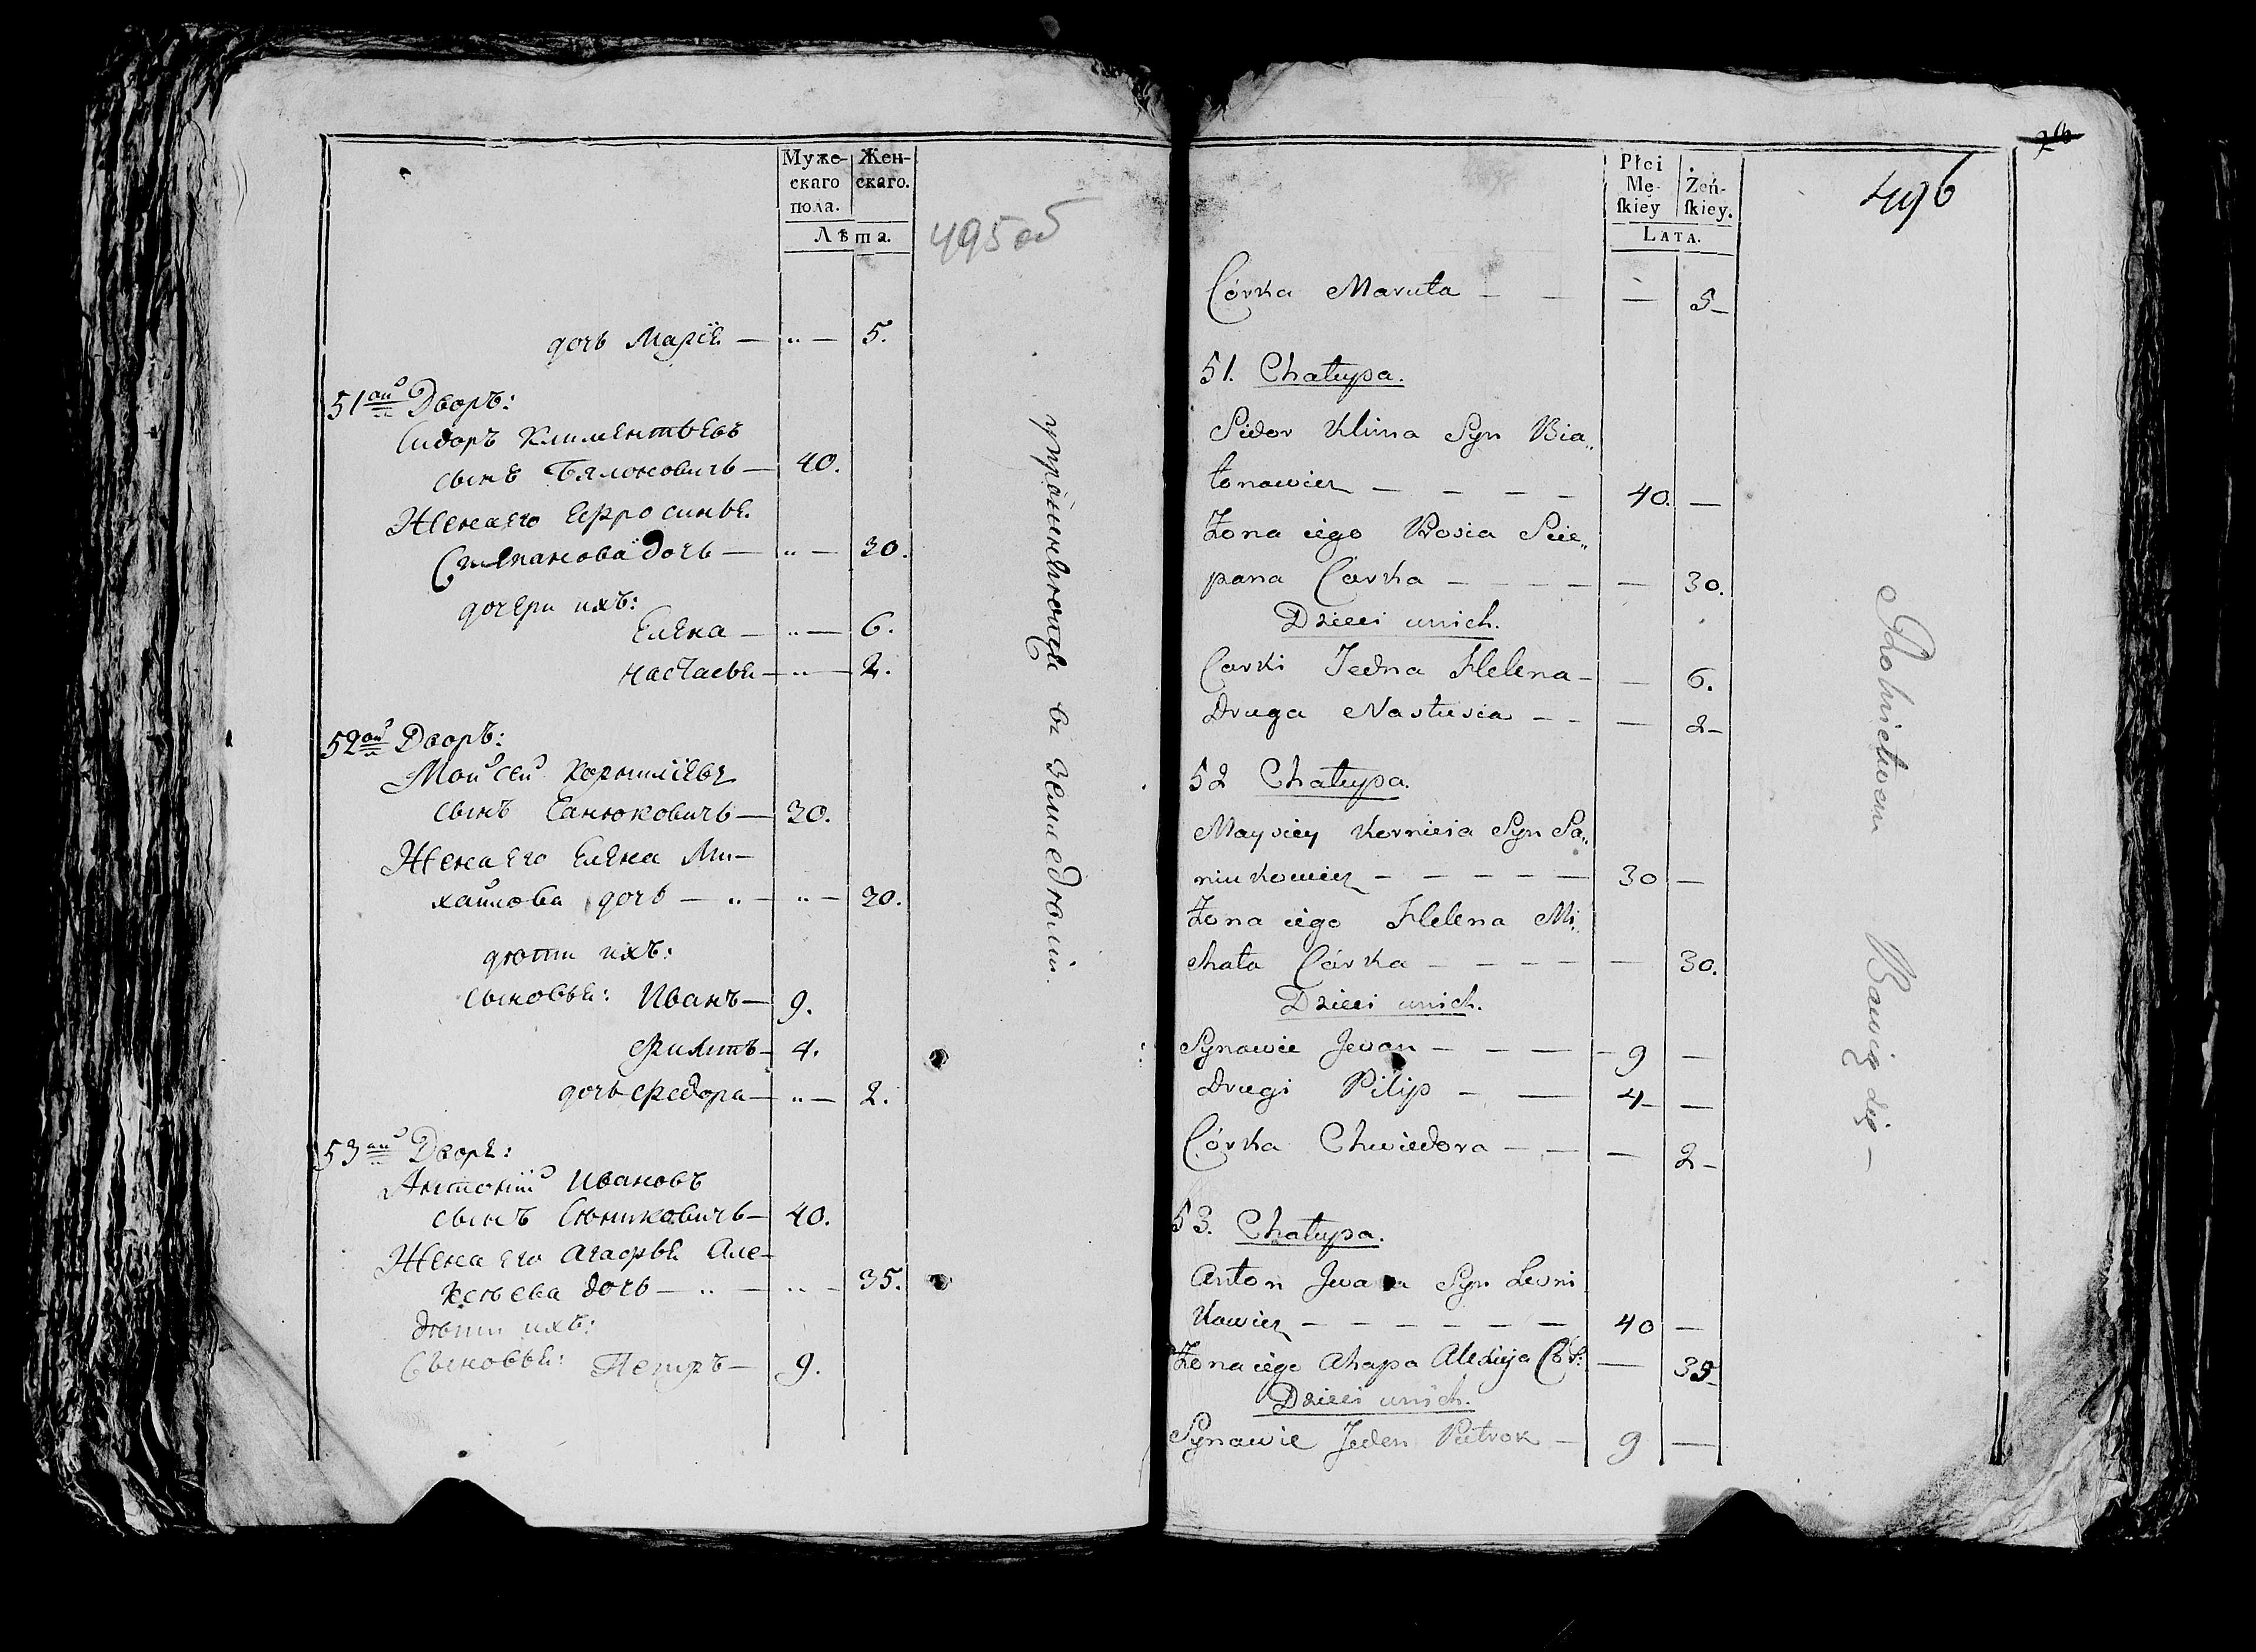 Муже-
скаго
пола.
Жен-
скаго.
Лѣта.
495 об
дочь Марїя — „ — 5.
51ый Дворъ:
Сидоръ Климентьевъ
сынъ Бялоновичъ — 40.
Жена его Ефросинья
Степанова дочь — „ — 30.
дочери ихъ:
Елена — „ — 6.
Настасья — „ — 2.
52ой Дворъ:
Мойсей Корнилїевъ
сынъ Санюковичъ — 30.
Жена его Елена Ми-
хайлова дочь — „ — „ — 30.
дѣти ихъ:
сыновья: Иванъ — 9.
Филипъ — 4.
дочь Федора — „ — 2.
53ий Дворъ:
Антонїй Ивановъ
сынъ — 40.
Жена его Агафья Але-
ксѣева дочь — „ — „ — 35.
дѣти ихъ:
Сыновья: Петръ — 9.
въ земледѣлїи.
496
Płci
Mę-
ſkiey
Żeń-
ſkiey.
LATA.
Córka Maruta — — — 5 —
51. Chałupa.
Sidor Klima Syn Bia„
łonowicz — — — — 40. —
Żona iego Prosia Scie„
pana Corka — — — — — 30.
Dzieci unich.
Corki Jedna Helena — — 6.
Druga Nastusia — — — 2 —
52 Chałupa.
Maysiey Kornieia Syn Sa„
niukowicz — — — — — 30 —
Żona iego Helena Mi„
chała Córka — — — — — 30.
Dzieci unich.
Synowie Jwan — — — — 9 —
Drugi Pilip — — 4 — —
Córka Chwiedora — — — 2 —
53. Chałupa.
Anton Jwana Syn Leoni
kowicz — — — — — — 40 —
Żona iego Ahapa Alexieja Cór: — 35 —
Dzieci unich.
Synowie Jeden Pietrok — 9 —
Rolnictwem Bawią się —